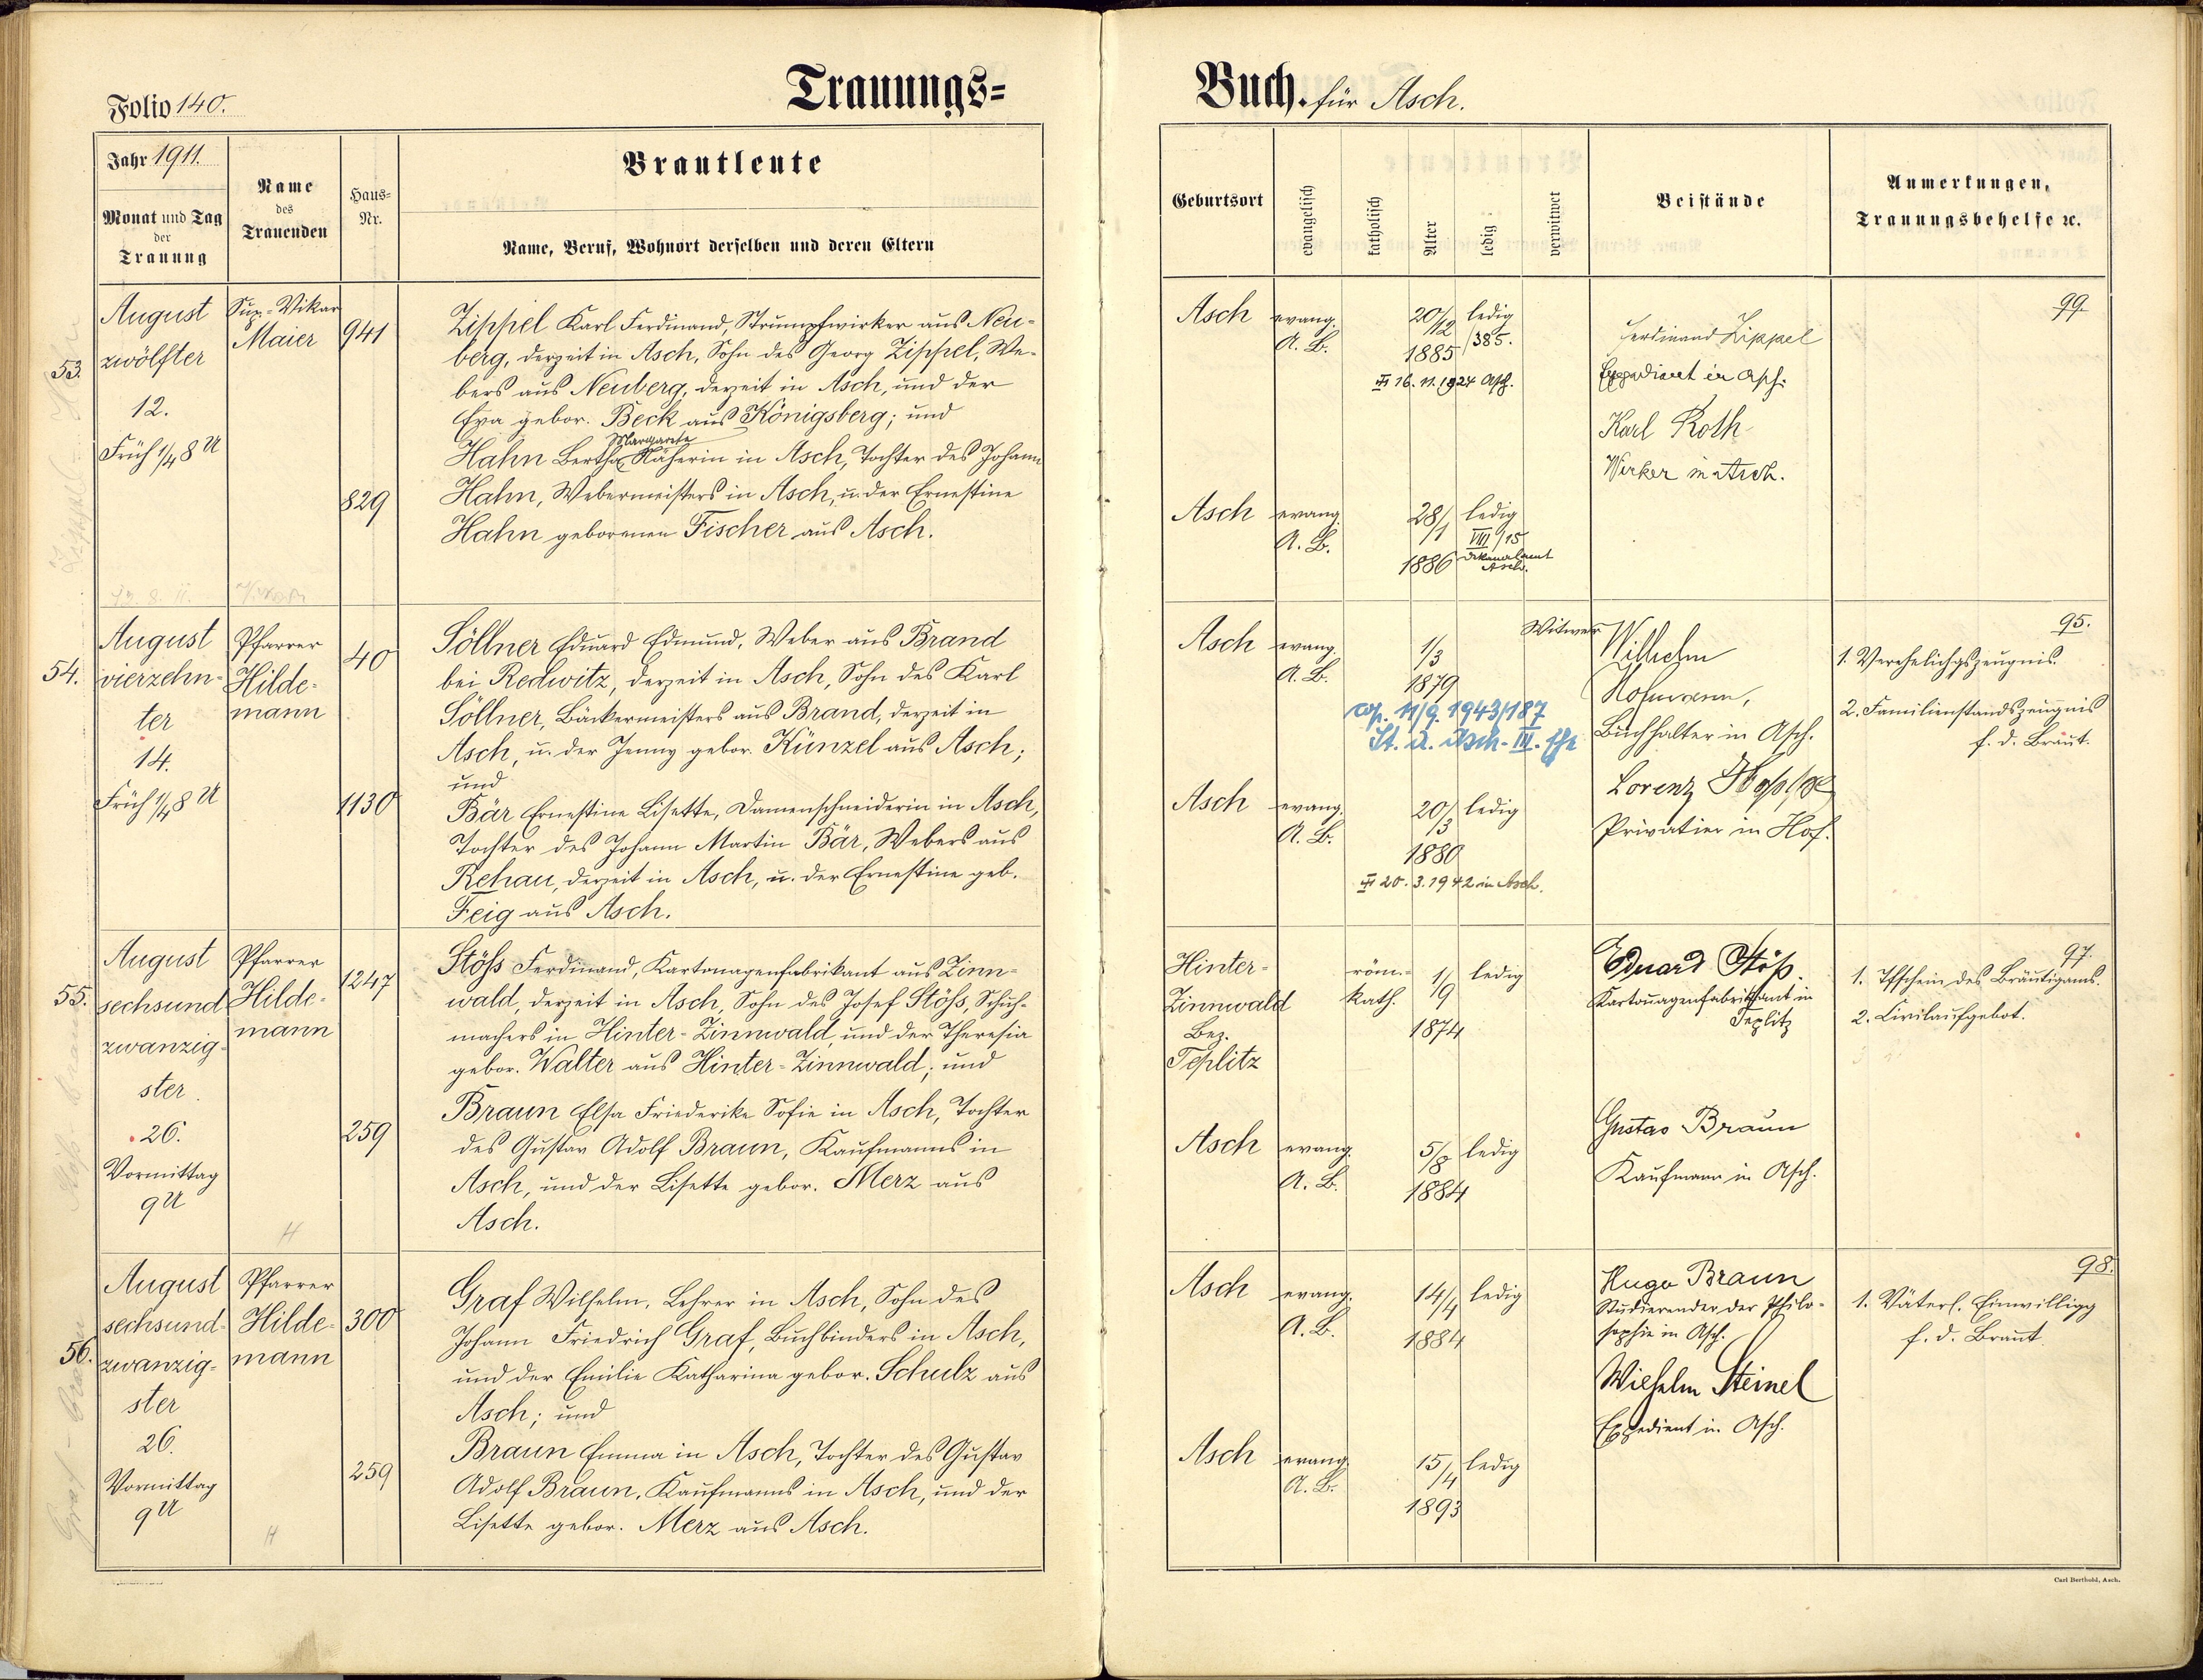 Folio 140.
Trauungs=
Jahr 1911.
Monat und Tag
der
Trauung
Name
des
Trauenden
Haus=
Nr.
Brautleute
Name, Beruf, Wohnort derselben und deren Eltern
53.
August
zwölfter
12.
Früh 1/4 8 U
Sup.-Vikar
Maier
941
Zippel Karl Ferdinand, Strumpfwirker aus Neu-
berg, derzeit in Asch, Sohn des Georg Zippel, We-
bers aus Neuberg, derzeit in Asch, und der
Eva gebor. Beck aus Königsberg; und
Margarete
Hahn Bertha Näherin in Asch, Tochter des Johann
829
Hahn, Webermeisters in Asch, u. der Ernestine
Hahn geborenen Fischer aus Asch.
54.
August
vierzehn-
ter
14.
Früh 1/4 8 U
Pfarrer
Hilde-
mann
40
Söllner Eduard Edmund, Weber aus Brand
bei Redwitz, derzeit in Asch, Sohn des Karl
Söllner, Bäckermeisters aus Brand, derzeit in
Asch, u. der Jenny gebor. Künzel aus Asch;
und
1130
Bär Ernestine Lisette, Damenschneiderin in Asch,
Tochter des Johann Martin Bär, Webers aus
Rehau, derzeit in Asch, u. der Ernestine geb.
Feig aus Asch.
55.
August
sechsund
zwanzig-
ster
26.
Vormittag
9 U
Pfarrer
Hilde-
mann
H
1247
Stöß Ferdinand, Kartonagenfabrikant aus Zinn-
wald, derzeit in Asch, Sohn des Josef Stöß, Schuh-
machers in Hinter-Zinnwald, und der Theresia
gebor. Walter aus Hinter-Zinnwald; und
259
Braun Elsa Friederike Sofie in Asch, Tochter
des Gustav Adolf Braun, Kaufmanns in
Asch, und der Lisette gebor. Merz aus
Asch.
56.
August
sechsund-
zwanzig-
ster
26.
Vormittag
9 U
Pfarrer
Hilde-
mann
H
300
Graf Wilhelm, Lehrer in Asch, Sohn des
Johann Friedrich Graf, Buchbinders in Asch,
und der Emilie Katharina gebor. Schulz aus
Asch; und
259
Braun Emma in Asch, Tochter des Gustav
Adolf Braun, Kaufmanns in Asch, und der
Lisette gebor. Merz aus Asch.
Buch. für Asch.
Geburtsort
evangelisch
katholisch
Alter
ledig
verwitwet
Beistände
Anmerkungen,
Trauungsbehelfe ec.
Asch
evang.
A. B.
20/12
1885
ledig
/385.
16. 11. 1924 Asch.
Ferdinand Zippel
Expedient in Asch.
Karl Roth
Wirker in Asch.
99.
Asch
evang.
A. B.
28/1
1886
ledig
VIII/15
Dekanalamt
Asch.
Asch
evang.
A. B.
1/3
1879
Witwer
cop. 11/9. 1943/187
St. A. Asch - III. Ehe
Wilhelm
Hofmann,
Buchhalter in Asch.
Lorenz
Privatier in Hof.
95.
1. Verehelichgszeugnis.
2. Familienstandszeugnis
f. d. Braut.
Asch
evang.
A. B.
20/3
1880
ledig
20. 3. 1942 in Asch.
Hinter-
Zinnwald
Bez.
Teplitz
röm.-
kath.
1/9
1874
ledig
Eduard Stöß.
Kartonagenfabrikant in
Teplitz
97.
1. Tfschein des Bräutigams.
2. Civilaufgebot.
Asch
evang.
A. B.
5/8
1884
ledig
Gustav Braun
Kaufmann in Asch.
Asch
evang.
A. B.
14/4
1884
ledig
Hugo Braun
Studierender der Philo-
sophie in Asch.
Wilhelm Steinel
Expedient in Asch.
98.
1. Väterl. Einwilligg
f. d. Braut.
Asch
evang.
A. B.
15/4
1893
ledig
Carl Berthold, Asch.